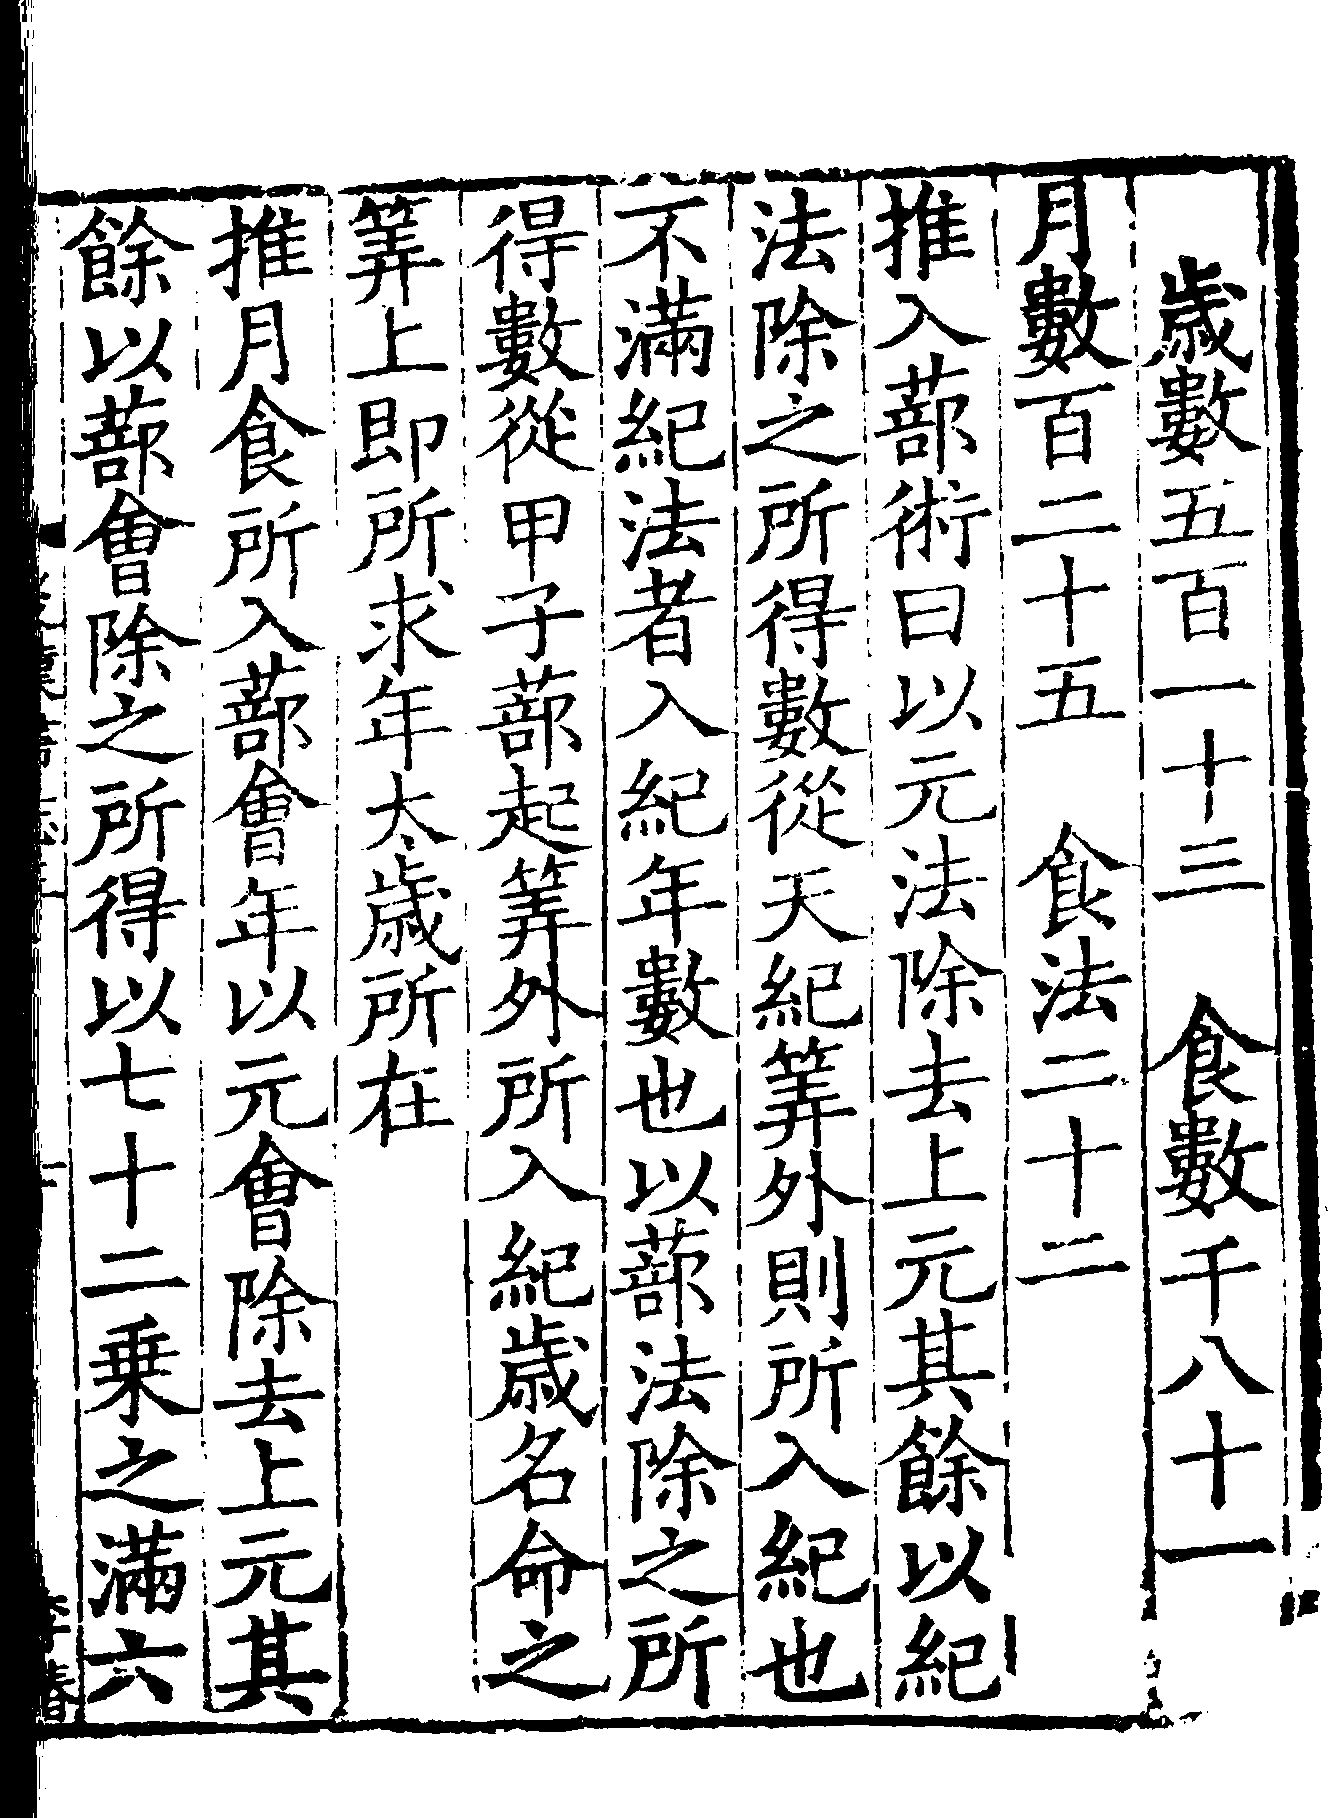 歲數五百一十三　食數千八十一
月數百二十五　食法二十二
推入蔀術曰以元法除去上元其餘以紀
法除之所得數從天紀筭外則所入紀也
不滿紀法者入紀年數也以蔀法除之所
得數從甲子蔀起筭外所入紀歲名命之
筭上即所求年太歲所在
推月食所入蔀會年以元會除去上元其
餘以蔀會除之所得以七十二乗之滿六